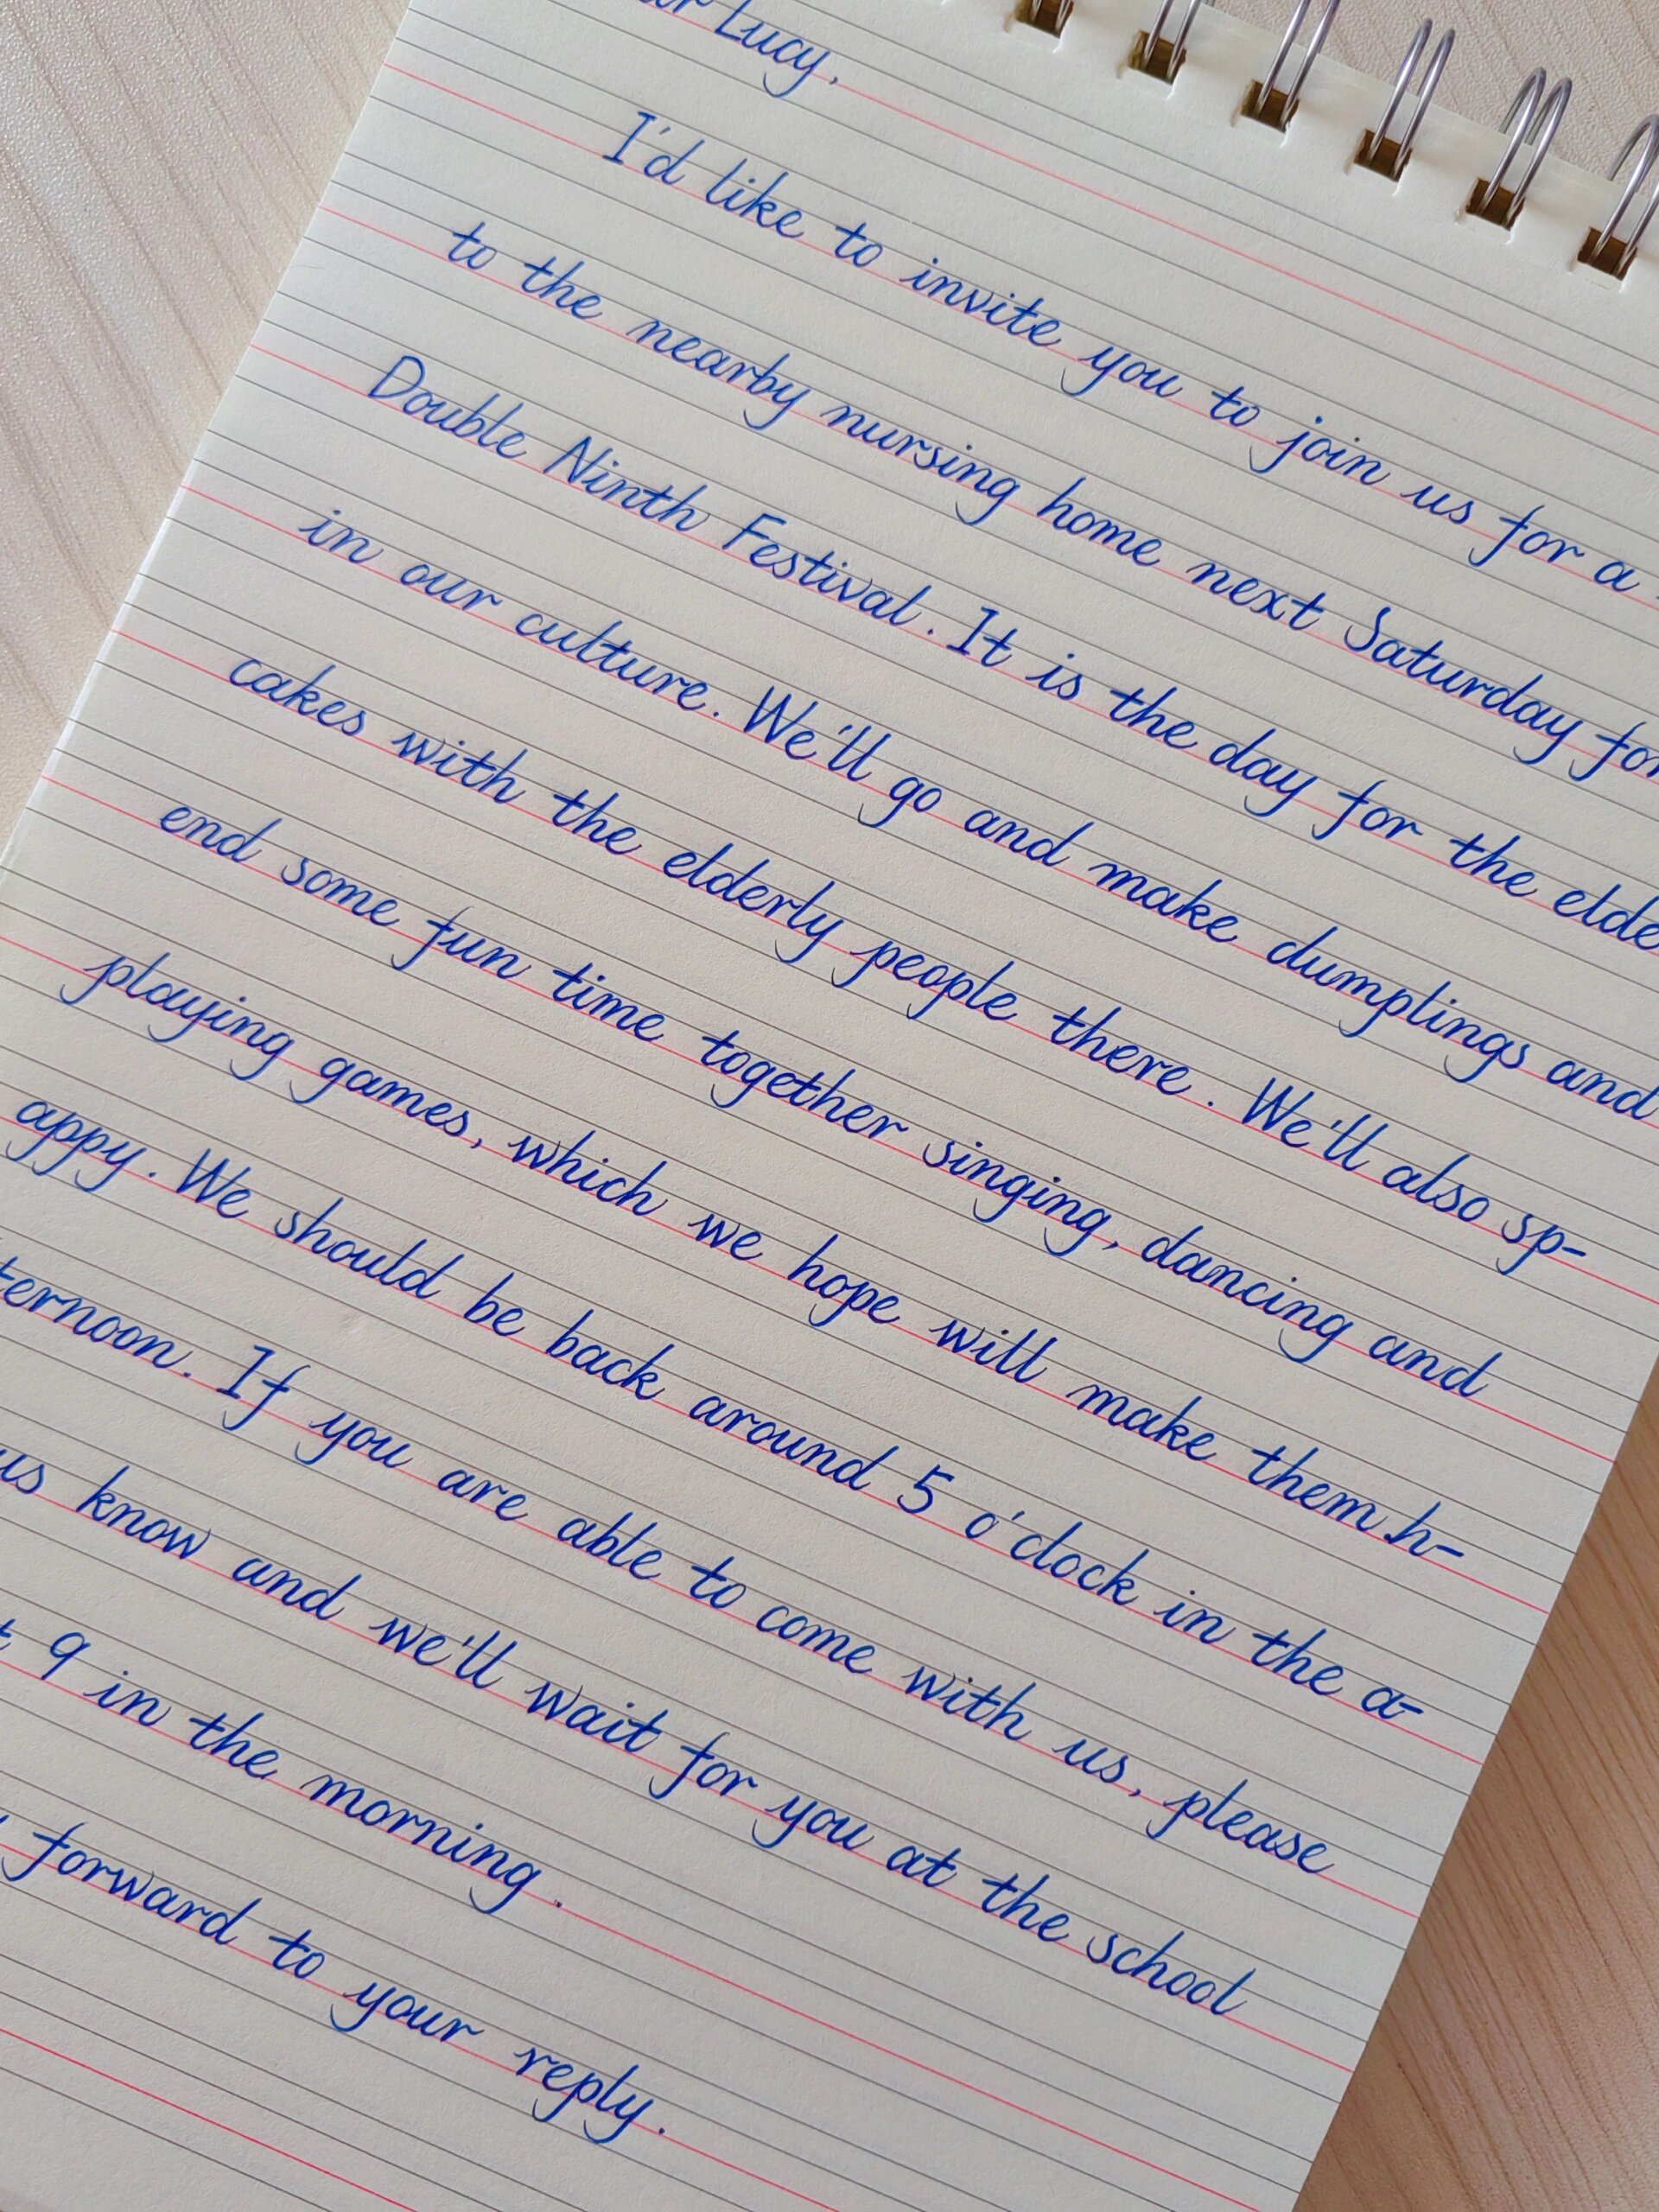 Lucy,
I'd like to invite you to join us for a
to the nearby nursing home next Saturday for
Double Ninth Festival. It is the day for the elde
in our culture. We'll go and make dumplings and
cakes with the elderly people there. We'll also sp-
end some fun time together singing, dancing and
playing games, which we hope will make them h-
appy. We should be back around 5 o'clock in the a-
ternoon. If you are able to come with us, please
us know and we'll wait for you at the school
9 in the morning.
forward to your reply.